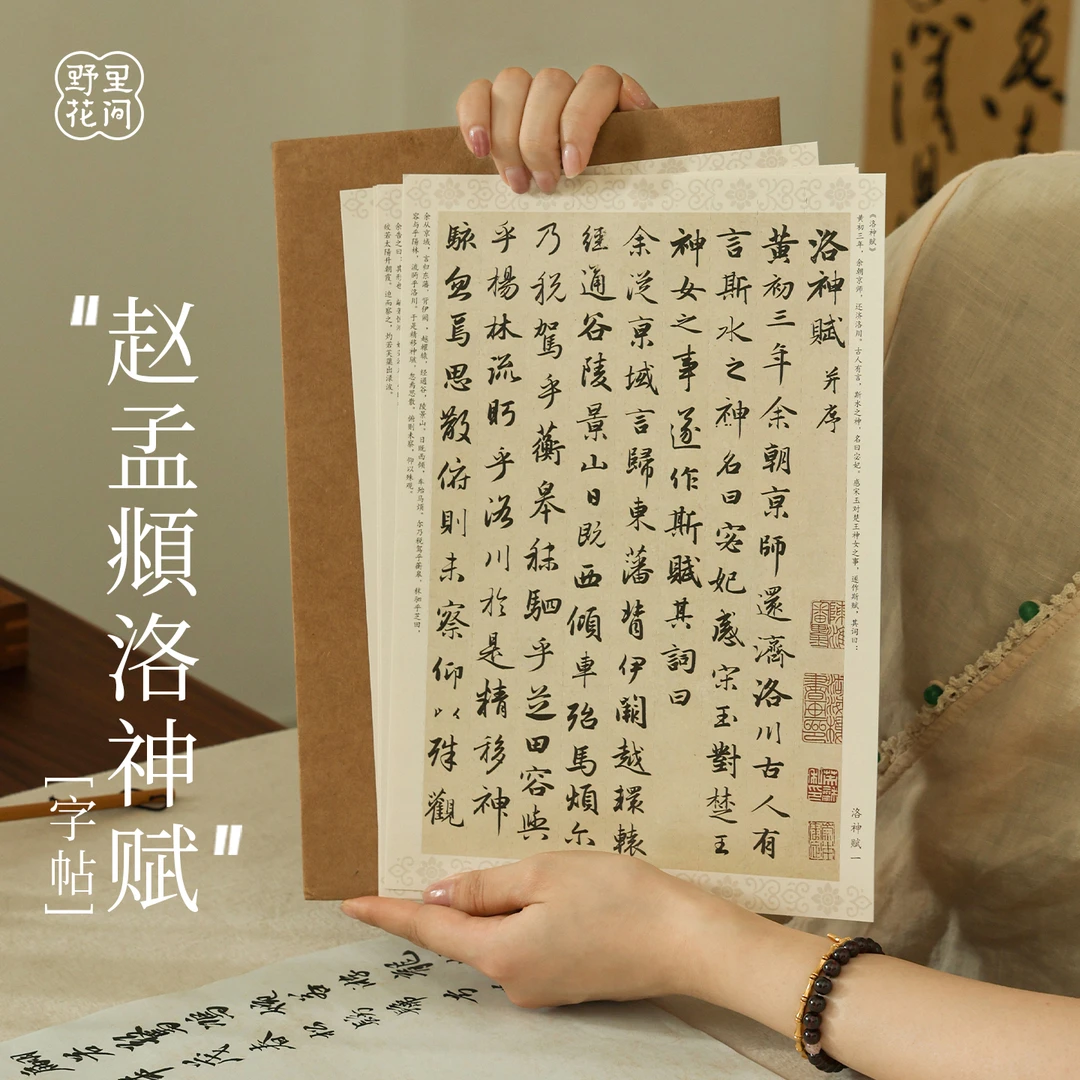 野里
花间
"赵孟頫洛神赋"
[字帖]
《洛神赋》
黄初三年，余朝京师，还济洛川。古人有言，斯水之神，名曰宓妃。感宋玉对楚王神女之事，遂作斯赋，其词曰：
洛神赋 一
洛神賦 并序
黄初三年余朝京師還濟洛川古人有
言斯水之神名曰宓妃感宋玉對楚王
神女之事遂作斯賦其詞曰
余從京域言歸東藩背伊闕越轘轅
經通谷陵景山日既西傾車殆馬煩尔
乃税駕乎蘅皋秣駟乎芝田容與
乎楊林流眄乎洛川於是精移神
駭忽焉思散俯則未察仰以殊觀
余从京域，言归东藩，背伊阙，越轘辕，经通谷，陵景山。日既西倾，车殆马烦。尔乃税驾乎蘅皋，秣驷乎芝田，
容与乎阳林，流眄乎洛川。于是精移神骇，忽焉思散。俯则未察，仰以殊观。
余告之曰：其形也，
皎若太阳升朝霞。迫而察之，灼若芙蕖出渌波。